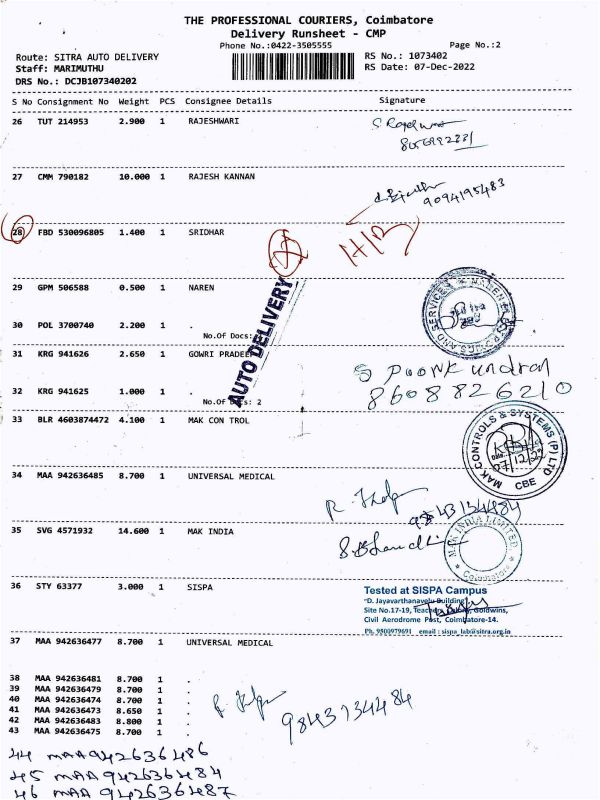 THE PROFESSIONAL COURIERS, Coimbatore
Delivery Runsheet - CMP
Phone No.:0422-3505555
Page No.:2
Route: SITRA AUTO DELIVERY
RS No.: 1073402
Staff: MARIMUTHU
RS Date: 07-Dec-2022
DRS No.: DCJB107340202
S No Consignment No Weight PCS Consignee Details Signature
26 TUT 214953 2.900 1 RAJESHWARI
27 CMM 790182 10.000 1 RAJESH KANNAN
9094195483
28 FBD 530096805 1.400 1 SRIDHAR
29 GPM 506588 0.500 1 NAREN
AUTO DELIVERY
30 POL 3700740 2.200 1 .
No.Of Docs:
31 KRG 941626 2.650 1 GOWRI PRADEEP
32 KRG 941625 1.000 1 .
8608826210
No.Of Docs: 2
33 BLR 4603874472 4.100 1 MAK CON TROL
MAK CONTROLS & SYSTEMS (P) LTD
07/12/22
CBE
34 MAA 942636485 8.700 1 UNIVERSAL MEDICAL
9843134484
35 SVG 4571932 14.600 1 MAK INDIA
MAK INDIA LIMITED
Coimbatore
36 STY 63377 3.000 1 SISPA
Tested at SISPA Campus
"D. Jayavarthanavelu Building"
Site No.17-19, Teachers Colony, Goldwins,
Civil Aerodrome Post, Coimbatore-14.
Ph. 9500979691 email : sispa_lab@sitra.org.in
37 MAA 942636477 8.700 1 UNIVERSAL MEDICAL
38 MAA 942636481 8.700 1 .
39 MAA 942636479 8.700 1 .
40 MAA 942636474 8.700 1 .
41 MAA 942636473 8.650 1 .
42 MAA 942636483 8.800 1 .
43 MAA 942636475 8.700 1 .
9843134484
44 MAA 942636486
45 MAA 942636484
46 MAA 942636487